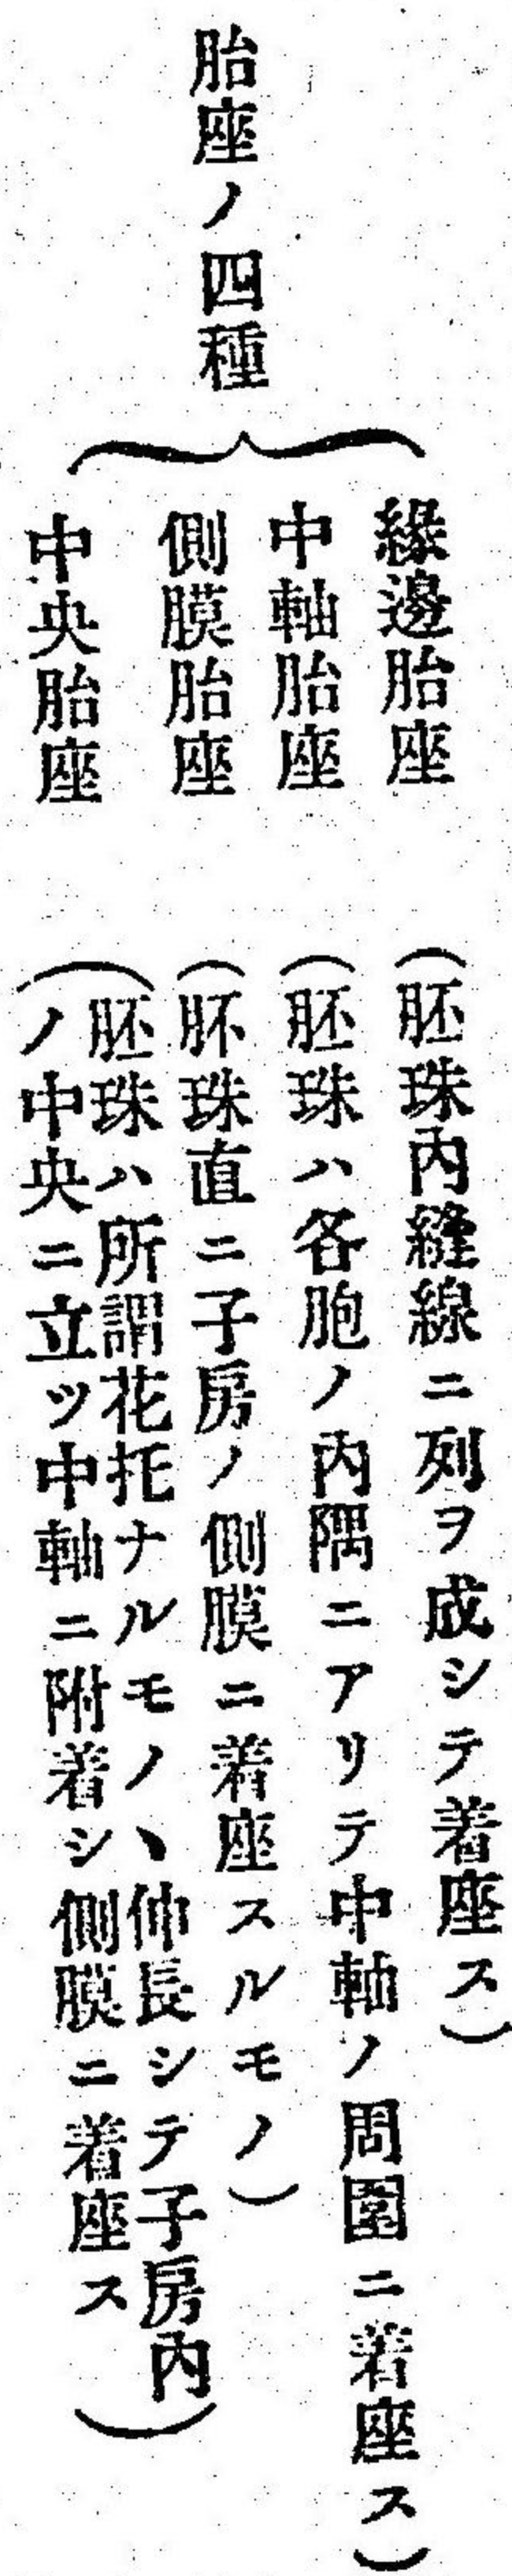 胎座ノ四種
緣邊胎座
(胚珠內縫線ニ列ヲ成シテ着座ス)
中軸胎座
(胚珠ハ各胞ノ內隅ニアリテ中軸ノ周圍ニ着座ス)
側膜胎座
(胚珠直ニ子房ノ側膜ニ着座スルモノ)
中央胎座
(胚珠ハ所謂花托ナルモノヽ伸長シテ子房內
ノ中央ニ立ツ中軸ニ附着シ側膜ニ着座ス)